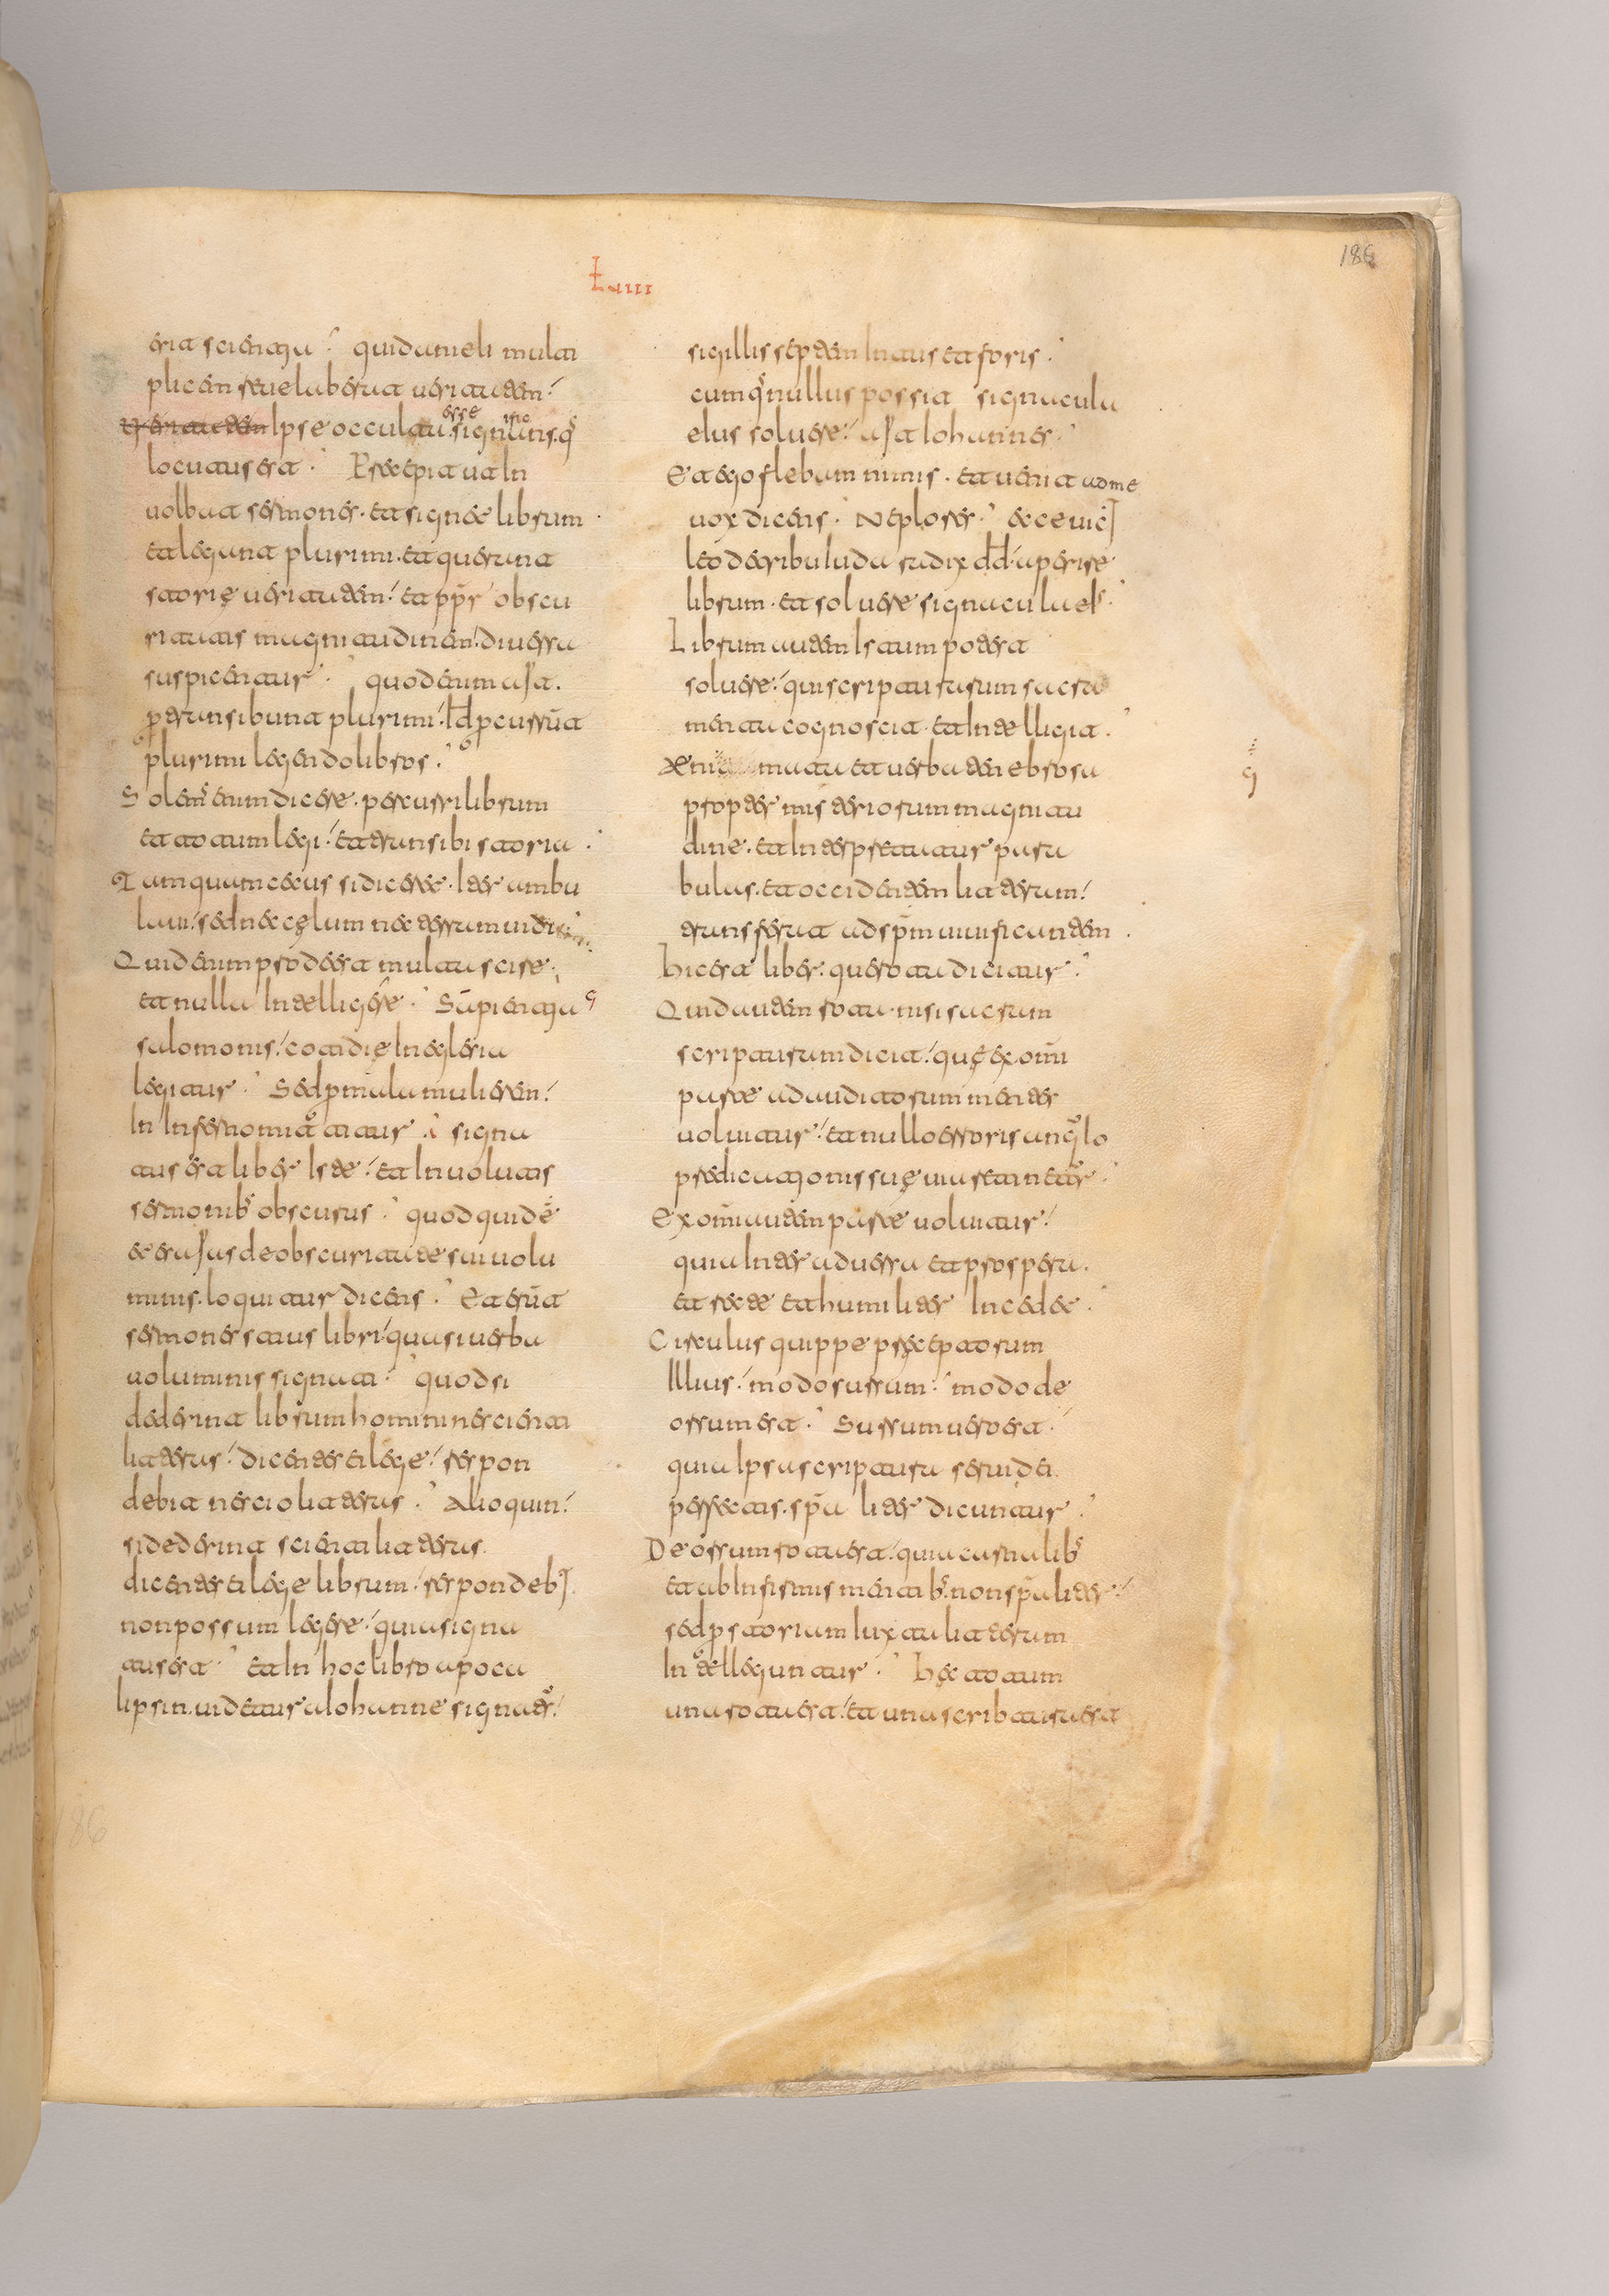 Lxiiii
186
erit scientia. quid danieli multi
plicem reuelaberit ueritatem.
ueritatem Ipse occulta esse signans hic. q
locuturus est. Precepit aut In
uolbat sermones. et signet librum
et legunt plurimi. et querunt
storie ueritatem. et pptr obscu
ritatis magnitudinem. diuersa
suspicentur. quod enim ait.
ptransibunt plurimi. Id pcurrūt
plurimi legendo libros.
Solem enim dicere. percurri librum
et totum legi. et transibi storia.
Tamquam cecus si diceret. Iter ambu
laui. sed nec cęlum nec terram uidi
Quid enim prodest multa scire.
et nulla Intelligere. Sapientia
salomonis. cotidię In eglesia
legitur. Sed p mala mulierem.
In Infernō mittitur. signa
tus est liber Iste. et Inuolutis
sermonib obscurus. quod quidē
et esaias de obscuritate sui uolu
minis. loquitur dicens. Et erūt
sermones istius libri. quasi uerba
uoluminis signati. quod si
dederint librum homini nescienti
literas. dicentes ei lege. respon
debit nescio literas. Alioquin.
si dederint scienti literas.
dicentes ei lege librum. respondeb
non possum legere. quia signa
tus est. Et In hoc libro apoca
lipsin. uidetur a Iohanne signat.
sigillis septem Intus et foris.
cumq nullus possit signacula
eius soluere. ait Iohannes.
Et ego flebam nimis. et uenit ad me
uox dicens. Ne plores. ecce uic
leo de tribu Iuda radix dd. aperire
librum. et soluere signacula ei.
Librum autem Istum poterit
soluere. qui scripturarum sacra
menta cognoscit. et Intelligit.
Enigmata et uerba tenebrosa
propter misteriorum magnitu
dine. et Interpretatur para
bulas. et occidentem literam.
transferat ad spm uiuificantem.
Hic est liber. que rota dicitur.
Quid autem rota. nisi sacram
scripturam dicit. quę ex omi
parte ad auditorum mentes
uoluitur. et nullo erroris angulo
predicationis suę uia retinetur.
Ex omi autem parte uoluitur.
quia Inter aduersa et prospera.
et recte et humiliter Incedet.
Circulus quippe preceptorum
Illius. modo sursum. modo de
orsum est. Sursum uero est.
quia Ipsa scriptura serui dei
perfectis. spalitер dicuntur.
De orsum rota est. quia castra lib
et ab Infirmis mentib. non spaliter.
sed p storiam Iuxta literam
Intelleguntur. Hęc totum
una rota est. et una scribtura est